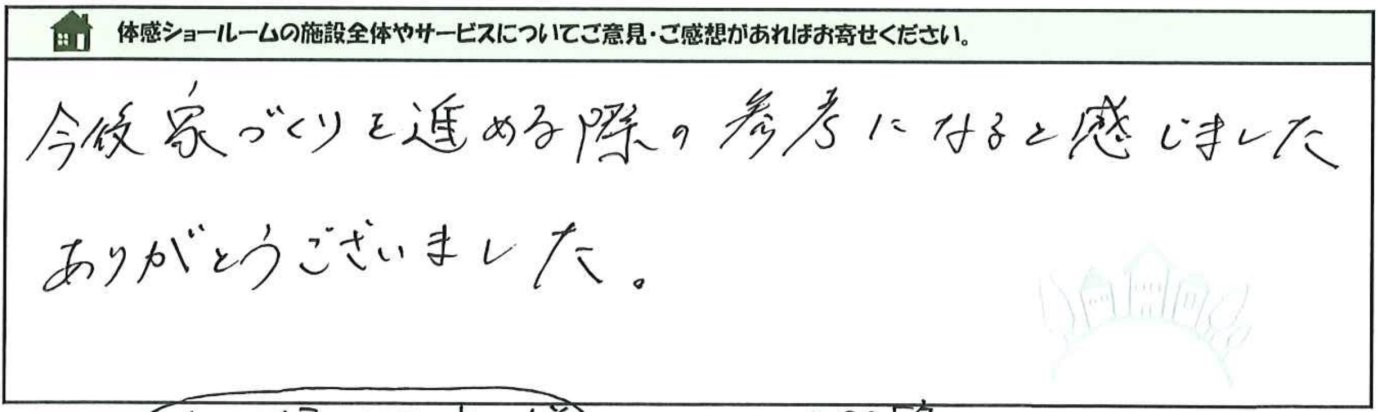 体感ショールームの施設全体やサービスについてご意見・ご感想があればお寄せください。
今後家づくりを進める際の参考になると感じました
ありがとうございました。